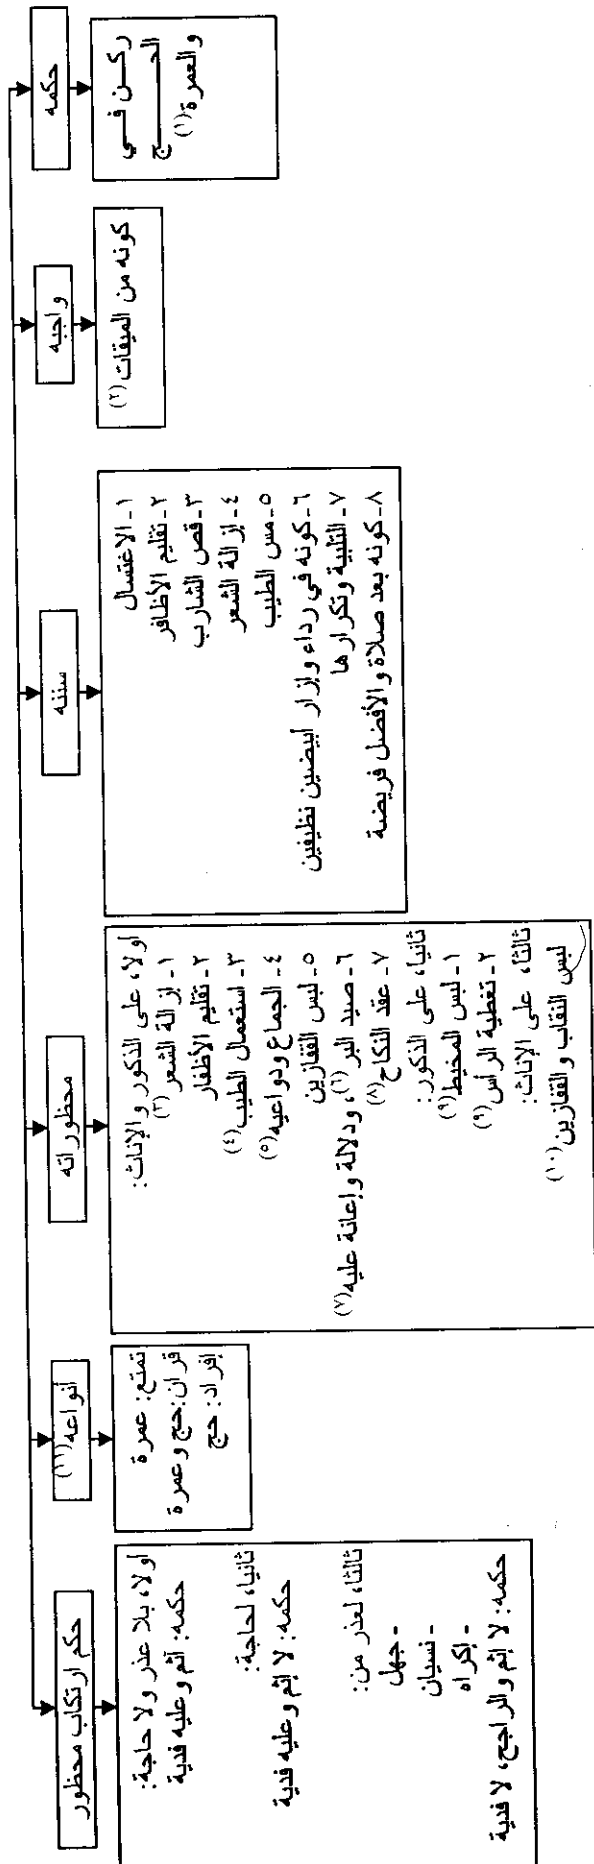 حكمه
ركن في
الحج
والعمرة(١)
واجبه
كونه من الميقات(٢)
سننه
١- الاغتسال
٢- تقليم الأظافر
٣- قص الشارب
٤- إزالة الشعر
٥- مس الطيب
٦- كونه في رداء وإزار أبيضين نظيفين
٧- التلبية وتكرارها
٨- كونه بعد صلاة والأفضل فريضة
محظوراته
أولا، على الذكور والإناث:
١- إزالة الشعر(٣)
٢- تقليم الأظفار
٣- استعمال الطيب(٤)
٤- الجماع ودواعيه(٥)
٥- لبس القفازين
٦- صيد البر(٦)، ودلالة وإعانة عليه(٧)
٧- عقد النكاح(٨)
ثانيا، على الذكور:
١- لبس المخيط(٩)
٢- تغطية الرأس(٩)
ثالثا، على الإناث:
لبس النقاب والقفازين(١٠)
أنواعه(١١)
تمتع: عمرة
قران: حج وعمرة
إفراد: حج
حكم ارتكاب محظور
أولا، بلا عذر ولا حاجة:
حكمه: آثم وعليه فدية
ثانيا، لحاجة:
حكمه: لا إثم وعليه فدية
ثالثا، لعذر من:
- جهل
- نسيان
- إكراه
حكمه: لا إثم والراجح، لا فدية